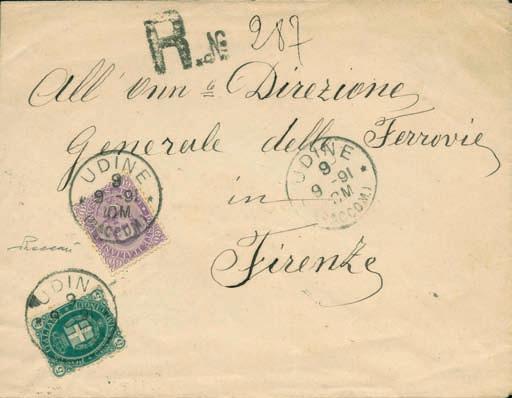 R. No 287
All' Onn le Direzione
Generale delle Ferrovie
in
Firenze
UDINE
9
9 -91
10M
(RACCOM)
UDINE
9
9 -91
10M
(RACCOM)
UDINE
9